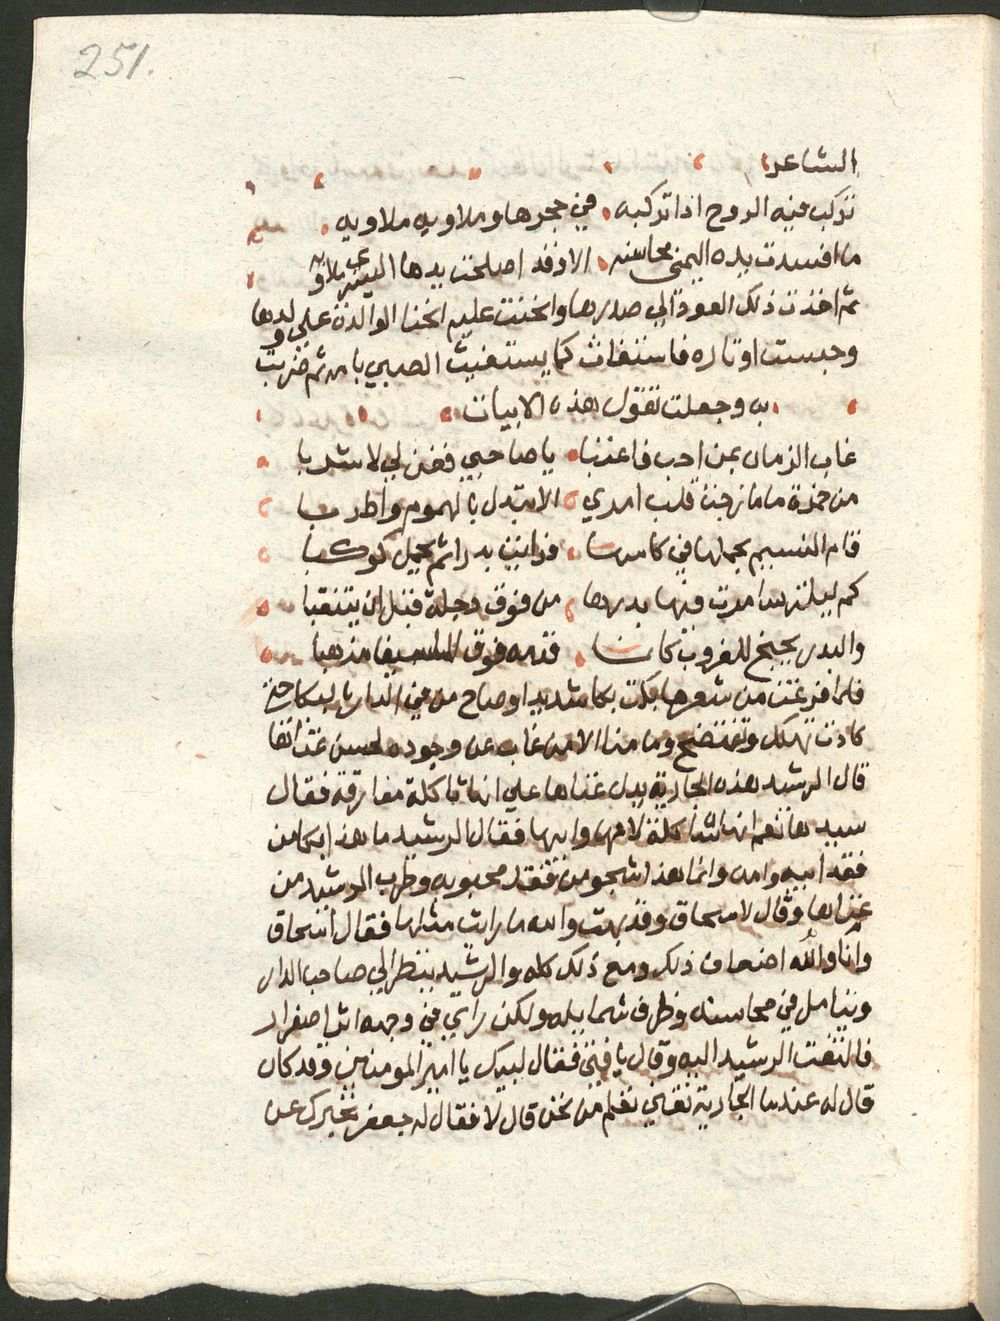 251.
الشاعر
تركب فيه الروح اذا تركبه في حجرها وملاويه ملاويه
ما افسدت يده اليمنى محاسنه الا وقد اصلحت يدها اليسرى بلاويه
ثم اخذت ذلك العود الي صدرها وانحنت عليه انحنا الوالدة علي ولدها
وحبست اوتاره فاستغاث كما يستغيث الصبي بامه ثم ضربت
به وجعلت تقول هذه الابيات
غاب الزمان عن احب فاعتبا يا صاحبي فغن لي لا شربا
من خمرة ما مازجت قلب امري الا تبدل بالهموم واطربا
قام النسيم بحملها في كاسها فرايت بدرا تم يحمل كوكبا
كم ليلة سامرت فيها بدرها من فوق دجلة قبل ان يتنقبا
والبدر يجنح للغروب كانما قد مد فوق الما سيفا مذهبا
فلما فرغت من شعرها بكت بكا شديدا وصاح من في الدار بالبكا حتى
كادت تهلك وتفتضح وما منا الا من غاب عن وجوده لحسن غنائها
قال الرشيد هذه الجارية يدل غناها علي انها ثاكلة مفارقة فقال
سيدها نعم انها ثاكلة لامها وابيها فقال الرشيد ما هذا بكا من
فقد ابيه وامه وانما هذا شجو من فقد محبوبه وطرب الرشيد من
غنايها وقال لاسحاق وقد بهت والله ما رايت مثلها فقال اسحاق
وانا والله اضعاف ذلك ومع ذلك كله والرشيد ينظر الي صاحب الدار
ويتامل في محاسنه وظرف شمايله ولكن راي في وجهه اثر اصفرار
فالتفت الرشيد اليه وقال يا فتي فقال لبيك يا امير المومنين وقد كان
قال له عندما الجارية تغني تعلم من نحن قال لا فقال له جعفر نخبرك عن